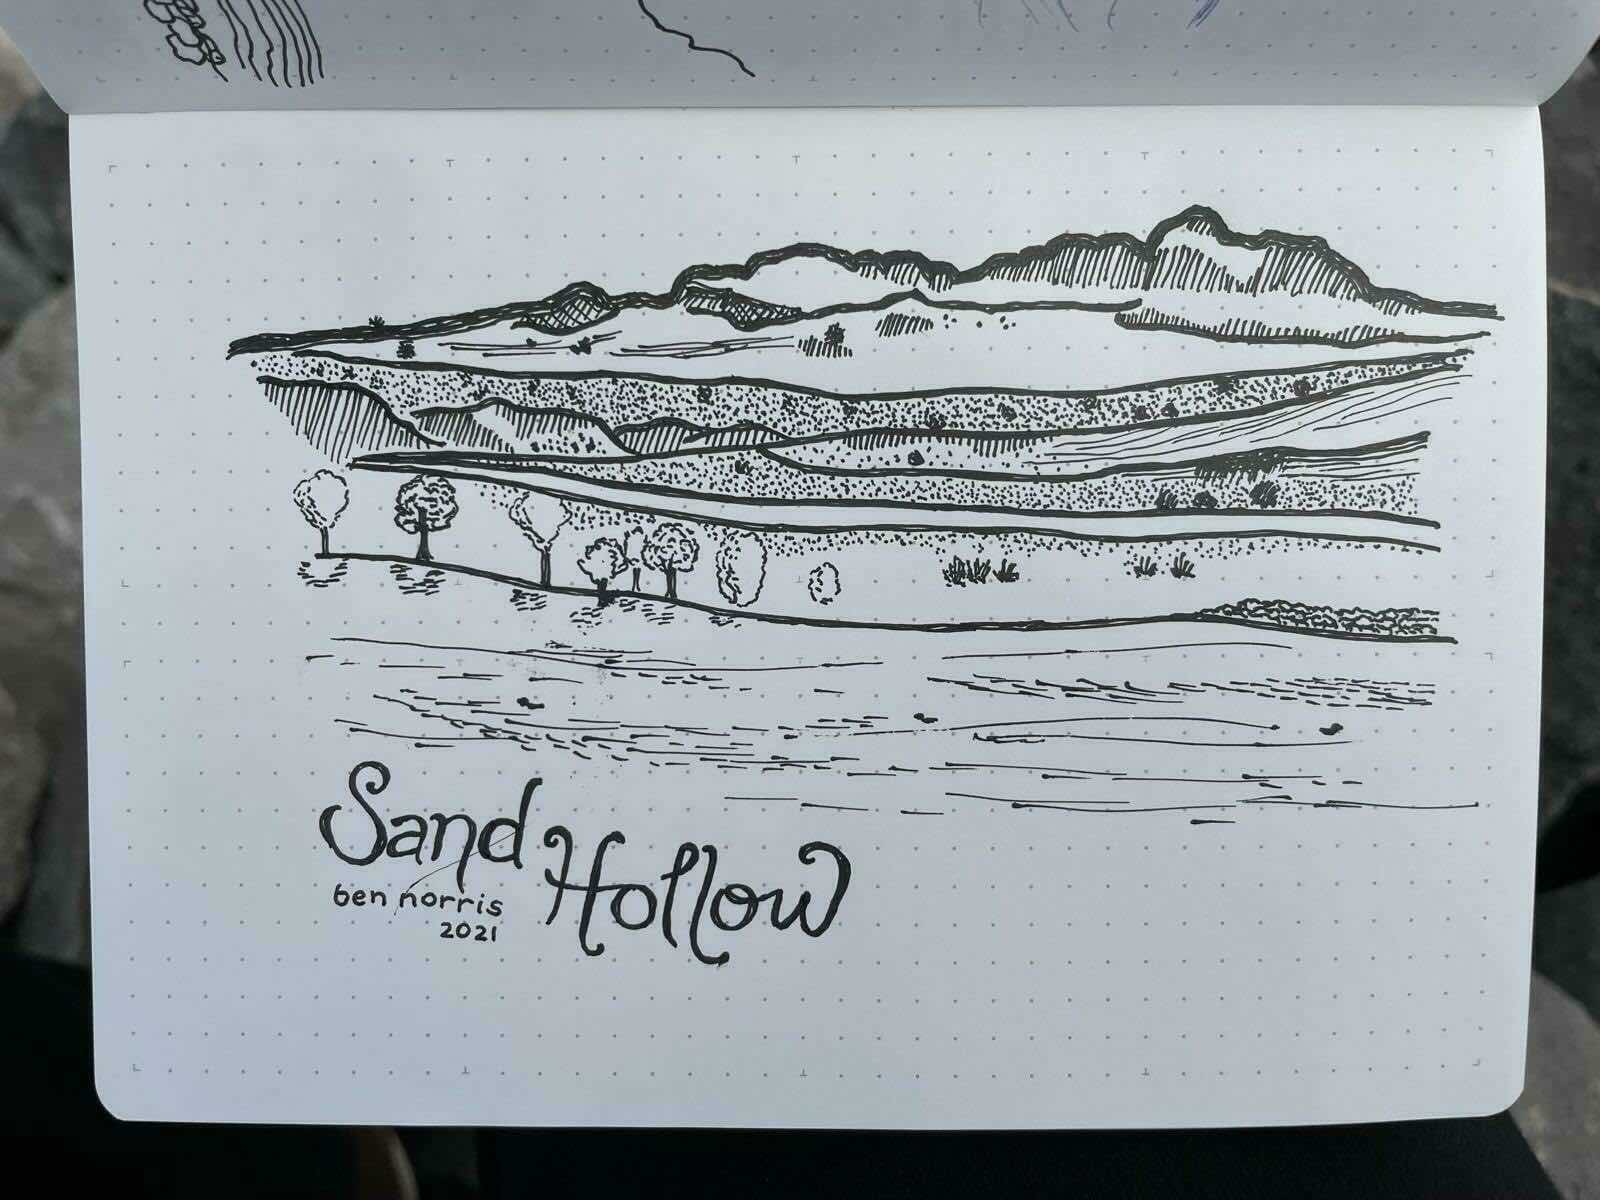 Sand Hollow
ben norris
2021